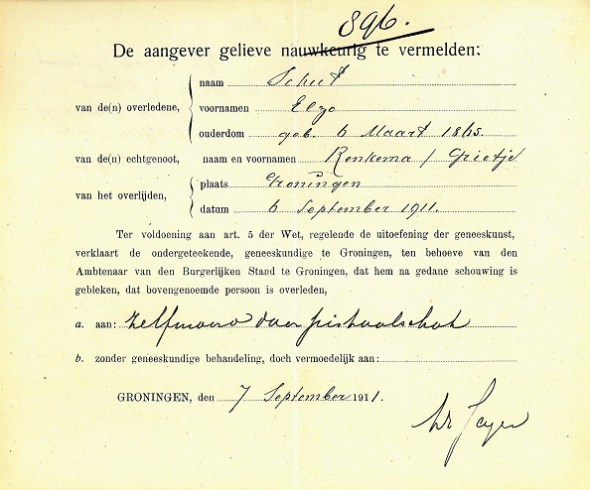 896.
De aangever gelieve nauwkeurig te vermelden:
van de(n) overledene,
naam Schut
voornamen Elzo
ouderdom geb. 6 Maart 1865
van de(n) echtgenoot, naam en voornamen Renkema / Grietje
van het overlijden,
plaats Groningen
datum 6 September 1911.
Ter voldoening aan art. 5 der Wet, regelende de uitoefening der geneeskunst,
verklaart de ondergeteekende, geneeskundige te Groningen, ten behoeve van den
Ambtenaar van den Burgerlijken Stand te Groningen, dat hem na gedane schouwing is
gebleken, dat bovengenoemde persoon is overleden,
a. aan: Zelfmoord door pistoolschot
b. zonder geneeskundige behandeling, doch vermoedelijk aan:
GRONINGEN, den 7 September 1911.